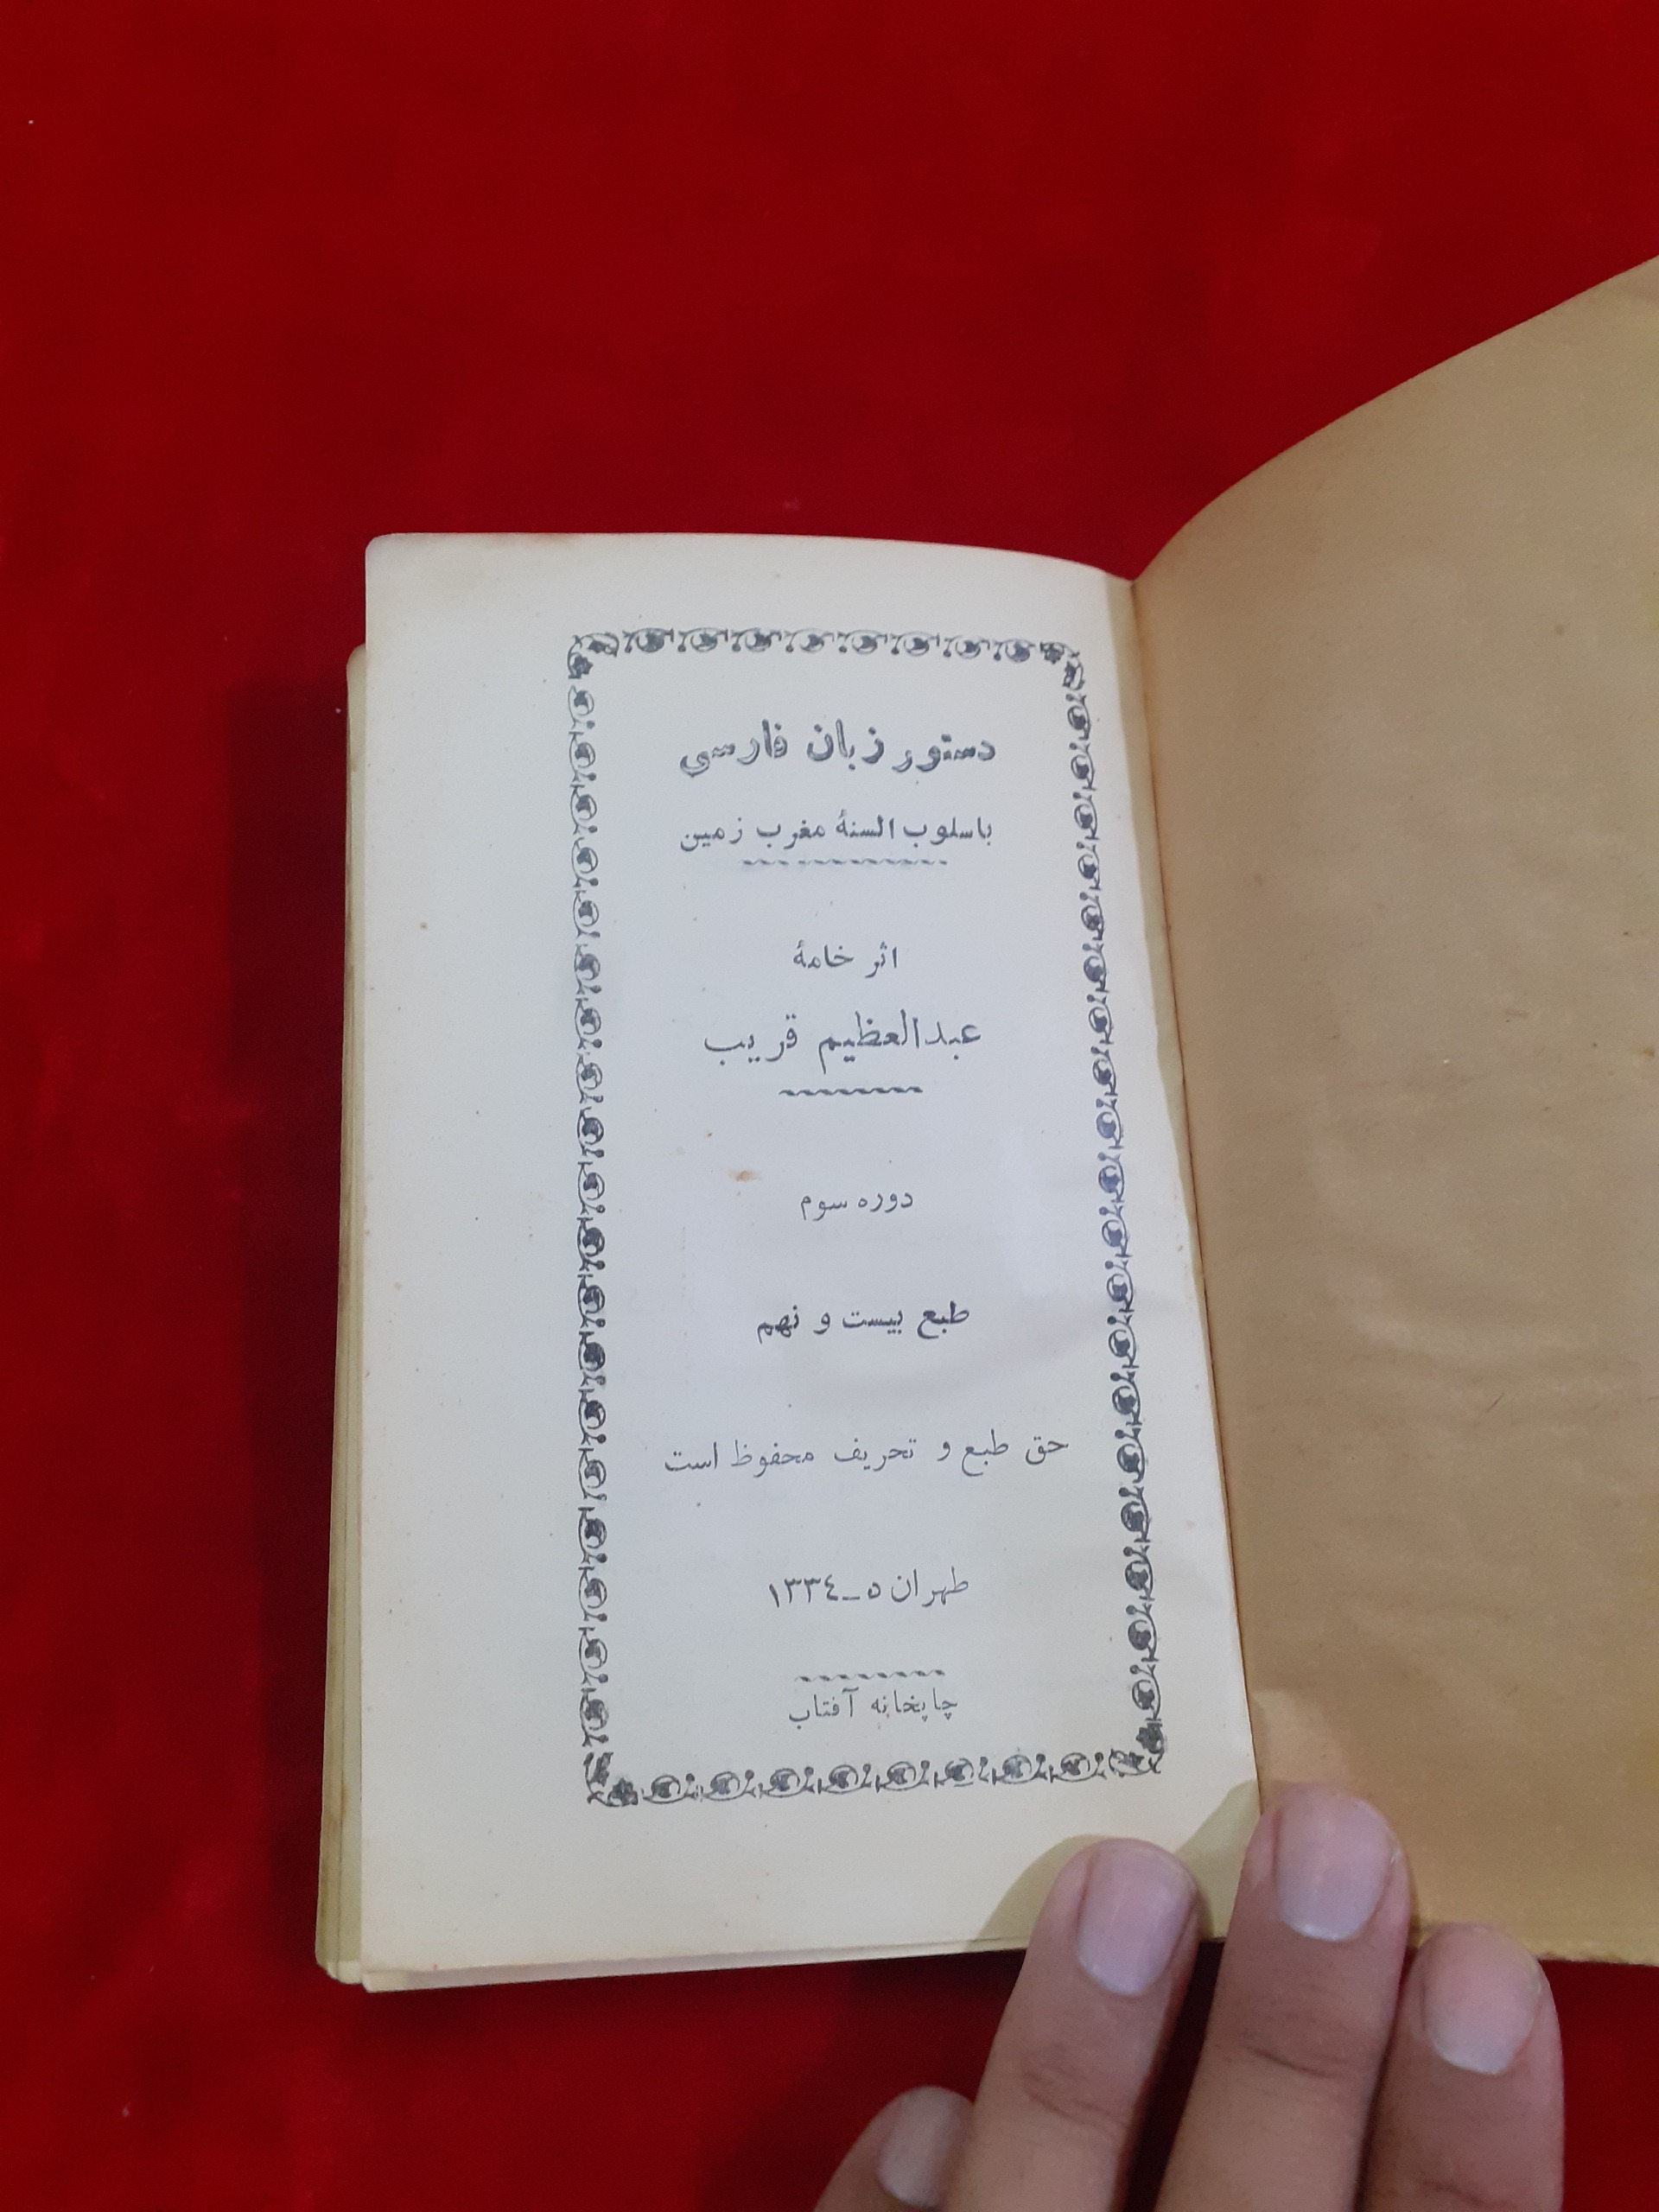 دستور زبان فارسی
باسلوب السنهٔ مغرب زمین
اثر خامهٔ
عبدالعظیم قریب
دوره سوم
طبع بیست و نهم
حق طبع و تحریف محفوظ است
طهران ۵ـ۱۳۳٤
چاپخانه آفتاب